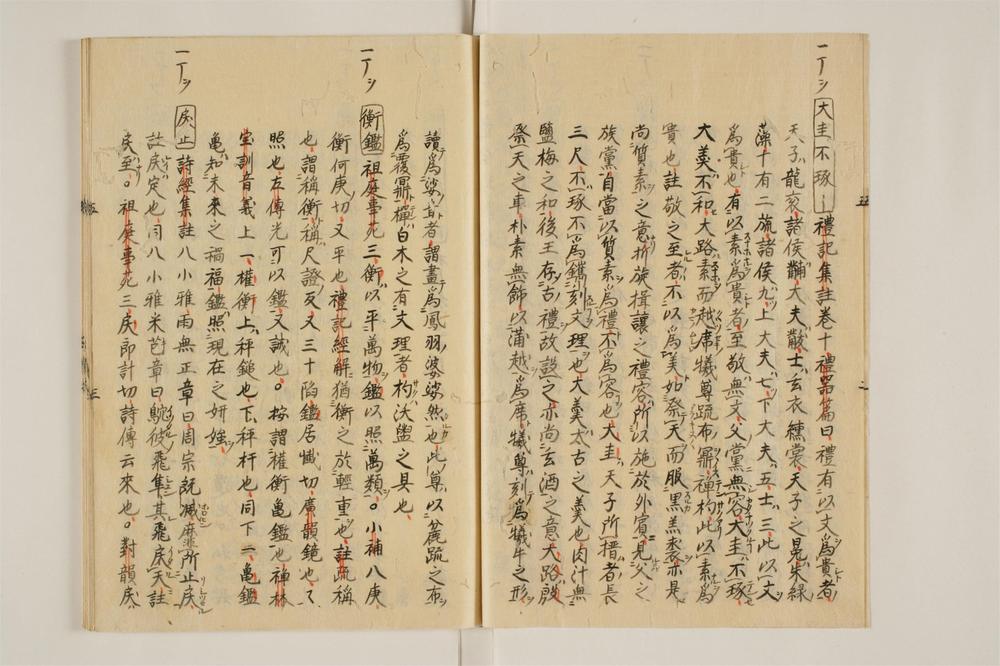 一丁ウ 大圭不琢 禮記集註卷十禮器篇曰禮有以文爲貴者
天子龍衮諸侯黼大夫黻士玄衣纁裳天子之冕朱緑
藻十有二旒諸侯九上大夫七下大夫五士三此以文
爲貴也有以素爲貴者至敬無文父黨無容大圭不琢
大羹不和大路素而越席犧尊疏布鼏樿杓此以素爲
貴也註敬之至者不以爲美如祭天而服黒羔裘亦是
尚質素之意折旋揖讓之禮容所以施於外賓見父之
族黨自當以質素爲禮不爲容也大圭天子所搢者長
三尺不琢不爲鐫刻文理也大羹太古之羹也肉汁無
鹽梅之和後王存古禮故設之亦尚玄酒之意大路殷
祭天之車朴素無飾以蒲越爲席犧尊刻爲犧牛之形
讀爲娑音者謂畫爲鳳羽婆娑然也此尊以麄疏之布
爲覆鼏樿白木之有文理者杓沃盥之具也
一丁ウ 衡鑑 祖庭事苑三衡以平萬物鑑以照萬類○小補八庚
衡何庚切又平也禮記經解猶衡之於輕重也註疏稱
也謂稱衡稱尺證反又三十陷鑑居懺切廣韻鏡也又
照也左傳光可以鑑又誡也○按謂權衡龜鑑也禅林
宝訓音義上一權衡上秤鎚也下秤杆也同下二龜鑑
亀知未來之禍福鑑照現在之妍媸
一丁ウ 戻止 詩經集註八小雅雨無正章曰周宗既滅靡所止戻
註戻定也同八小雅采芑章曰鴥彼飛隼其飛戻天註
戻至○祖庭事苑三戻郎計切詩傳云來也○對韻戻